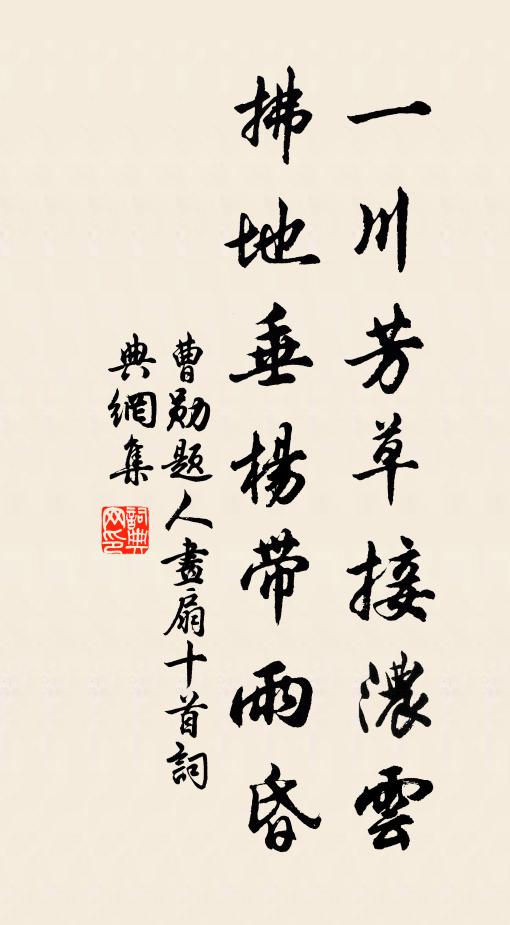 一川芳草接濃雲
拂地垂楊帶雨昏
曹勛題人畫扇十首詞
典網集
詞典網印